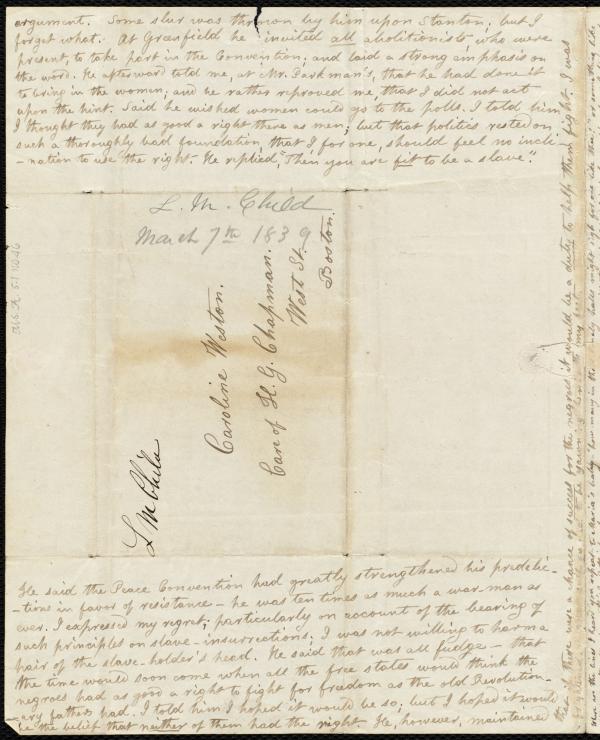 argument. Some slur was thrown by him upon Stanton, but I
forget what. At Greenfield he invited all abolitionists, who were
present, to take part in the Convention; and laid a strong emphasis on
the word. He afterward told me, at Mr. Parkman's, that he had done it
to bring in the women; and he rather reproved me, that I did not act
upon the hint. Said he wished women could go to the polls. I told him
I thought they had as good a right there as men; but that politics rested on
such a thoroughly bad foundation, that I for one, should feel no incli-
-nation to use the right. He replied, "Then you are fit to be a slave."
L. M. Child
March 7th 1839
Caroline Weston.
Care of H. G. Chapman.
West St.
Boston.
L M Child
He said the Peace Convention had greatly strengthened his predelic-
-tions in favor of resistance - he was ten times as much a war man as
ever. I expressed my regret; particularly on account of the bearing of
such principles on slave-insurrections; I was not willing to harm a
hair of the slave-holder's head. He said that was all fudge - that
the time would soon come when all the free states would think the
negroes had as good a right to fight for freedom as the old Revolution-
-ary fathers had. I told him I hoped it would be so; but I hoped it would
be the belief that neither of them had the right. He, however, maintained
that if there were a chance of success for the negroes, it would be a duty to help them fight. I was